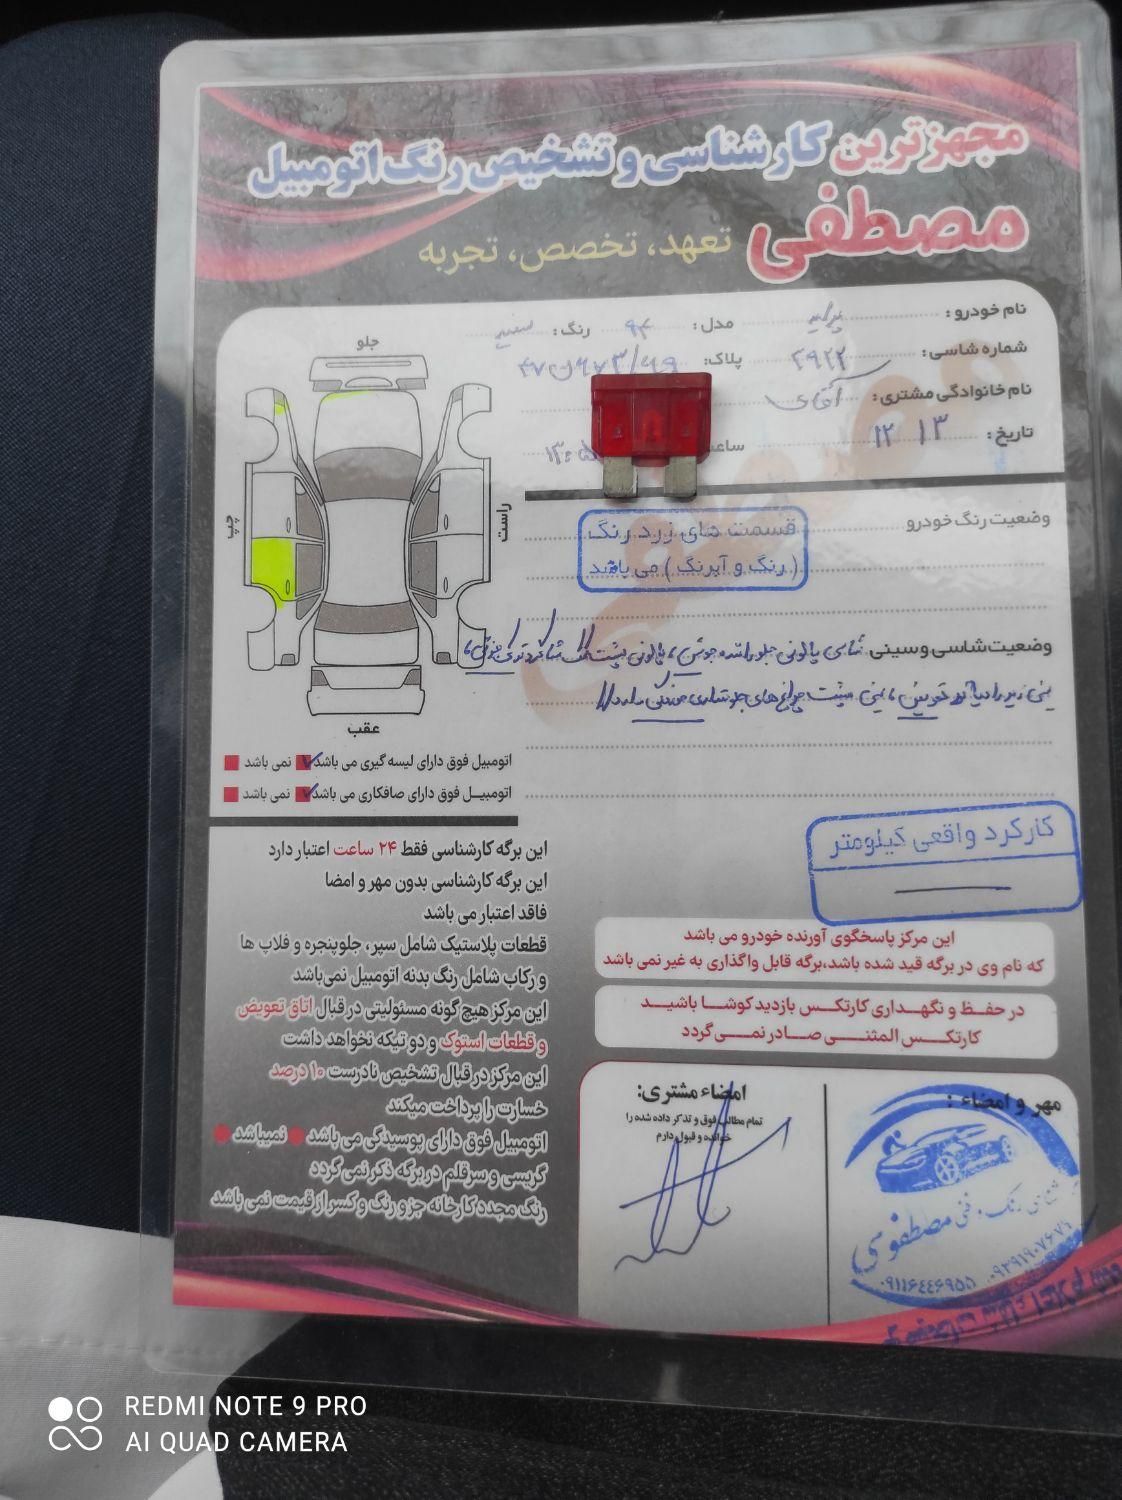 مجهزترین کارشناسی و تشخیص رنگ اتومبیل
مصطفی تعهد، تخصص، تجربه
نام خودرو: پراید مدل: ۹۴ رنگ: سفید
شماره شاسی: ۲۹۲۲ پلاک:
نام خانوادگی مشتری: آقای
تاریخ: ۱۲ ۱۳ ساعت
جلو
چپ
راست
عقب
وضعیت رنگ خودرو
قسمت های زرد رنگ
(رنگ و آبرنگ) می باشد
وضعیت شاسی و سینی: شاسی پالونی جلو راننده جوش، پالونی پشت کمک شاگرد
سینی زیر رادیاتور تعویض، سینی پشت چراغ های جلو
اتومبیل فوق دارای لیسه گیری می باشد نمی باشد
اتومبیل فوق دارای صافکاری می باشد نمی باشد
کارکرد واقعی کیلومتر
این برگه کارشناسی فقط ۲۴ ساعت اعتبار دارد
این برگه کارشناسی بدون مهر و امضا
فاقد اعتبار می باشد
قطعات پلاستیک شامل سپر، جلوپنجره و فلاپ ها
و رکاب شامل رنگ بدنه اتومبیل نمی‌باشد
این مرکز هیچ گونه مسئولیتی در قبال اتاق تعویض
و قطعات استوک و دو تیکه نخواهد داشت
این مرکز در قبال تشخیص نادرست ۱۰ درصد
خسارت را پرداخت میکند
اتومبیل فوق دارای پوسیدگی می باشد نمیباشد
گریسی و سرقلم در برگه ذکر نمی گردد
رنگ مجدد کارخانه جزو رنگ و کسر از قیمت نمی باشد
این مرکز پاسخگوی آورنده خودرو می باشد
که نام وی در برگه قید شده باشد،برگه قابل واگذاری به غیر نمی باشد
در حفظ و نگهداری کارتکس بازدید کوشا باشید
کارتکس المثنی صادر نمی گردد
امضاء مشتری:
تمام مطالب فوق و تذکر داده شده را
خوانده و قبول دارم
مهر و امضاء:
کارشناسی رنگ و فنی مصطفوسی
REDMI NOTE 9 PRO
AI QUAD CAMERA